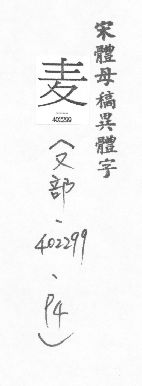 宋體母稿異體字
麦
402299
(又部、402299、P4)